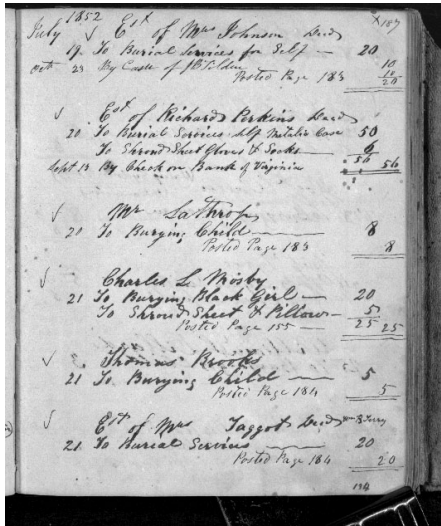 1852 187
July Est of Mrs Johnson Decd
19. To Burial Services for Self — 20
Octr 23 By Cash of J B Tilden 10
Posted Page 183 10
20
Est of Richard Perkins Decd
20 To Burial Services Self Metalic Case 50
To Shroud Sheet Gloves & Socks 6
56 56
Sept 13 By Check on Bank of Virginia
Mr LaThrop
20 To Burying Child 8
Posted Page 183 8
Charles L. Mosby
21 To Burying Black Girl — 20
To Shroud Sheet & Pillow — 5
Posted Page 155 — 25 25
Thomas Brooks
21 To Burying Child 5
Posted Page 184 5
Est of Mrs Taggot Decd
21. To Burial Services 20
Posted Page 184 20
134